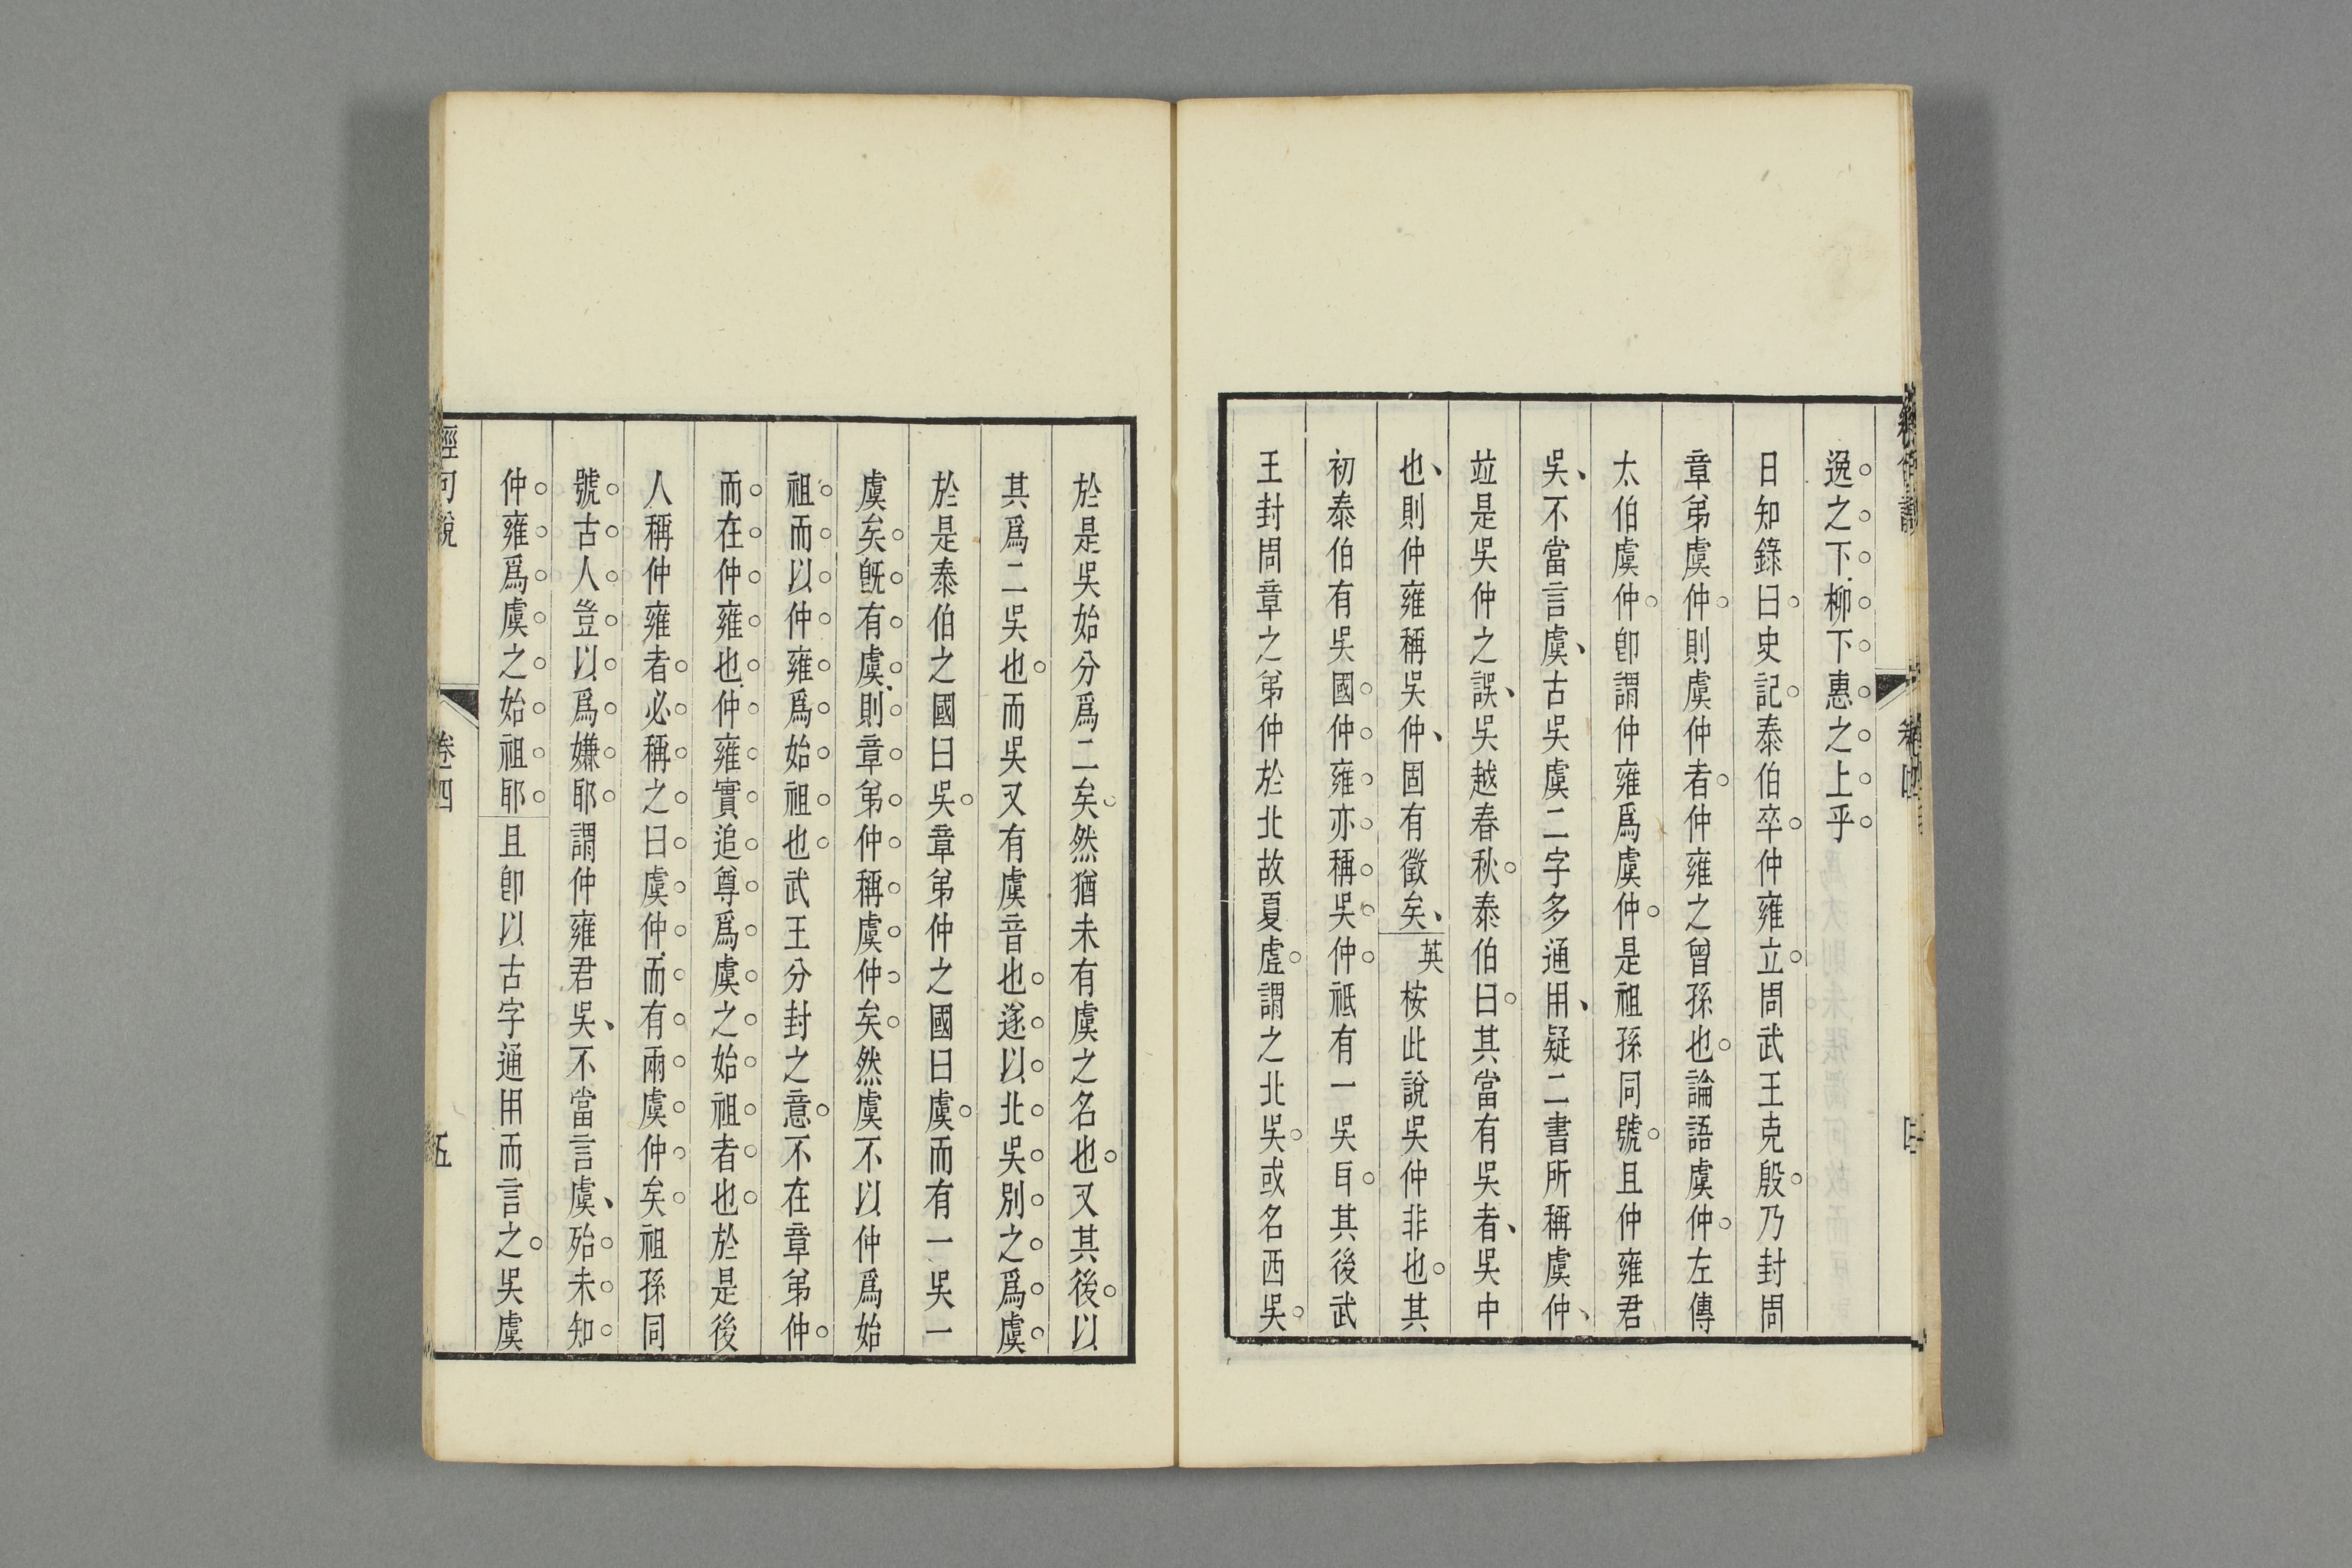 逸之下柳下惠之上乎
日知錄曰史記泰伯卒仲雍立周武王克殷乃封周
章弟虞仲則虞仲者仲雍之曾孫也論語虞仲左傳
太伯虞仲卽謂仲雍爲虞仲是祖孫同號且仲雍君
吳不當言虞古吳虞二字多通用疑二書所稱虞仲
竝是吳仲之誤吳越春秋泰伯曰其當有吳者吳中
也則仲雍稱吳仲固有徵矣英桉此說吳仲非也其
初泰伯有吳國仲雍亦稱吳仲祗有一吳耳其後武
王封周章之弟仲於北故夏虛謂之北吳或名西吳
於是吳始分爲二矣然猶未有虞之名也又其後以
其爲二吳也而吳又有虞音也遂以北吳別之爲虞
於是泰伯之國曰吳章弟仲之國曰虞而有一吳一
虞矣旣有虞則章弟仲稱虞仲矣然虞不以仲爲始
祖而以仲雍爲始祖也武王分封之意不在章弟仲
而在仲雍也仲雍實追尊爲虞之始祖者也於是後
人稱仲雍者必稱之曰虞仲而有兩虞仲矣祖孫同
號古人豈以爲嫌耶謂仲雍君吳不當言虞殆未知
仲雍爲虞之始祖耶且卽以古字通用而言之吳虞
經句說
卷四
五